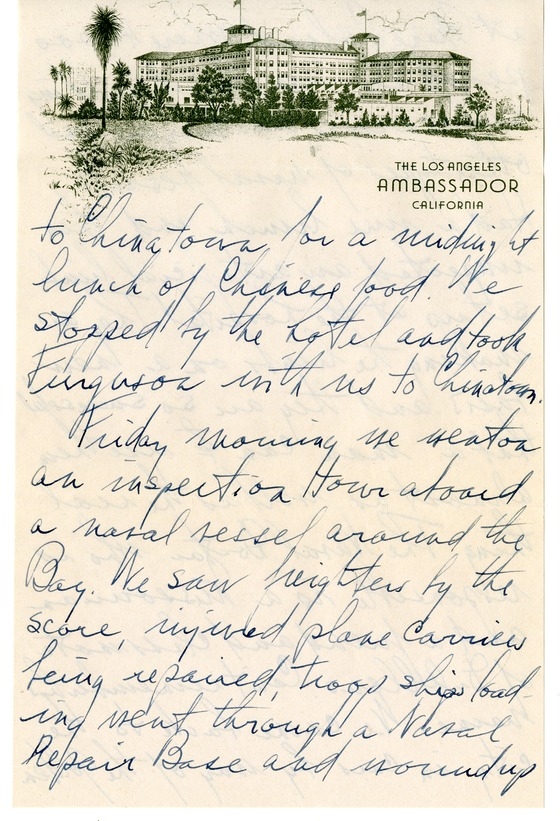 THE LOS ANGELES
AMBASSADOR
CALIFORNIA
to Chinatown for a midnight
lunch of Chinese food. We
stopped by the hotel and took
Ferguson with us to Chinatown.
Friday morning we went on
an inspection tour aboard
a naval vessel around the
Bay. We saw freighters by the
score, injured plane carriers
being repaired, troop ships load-
ing went through a Naval
Repair Base and wound up